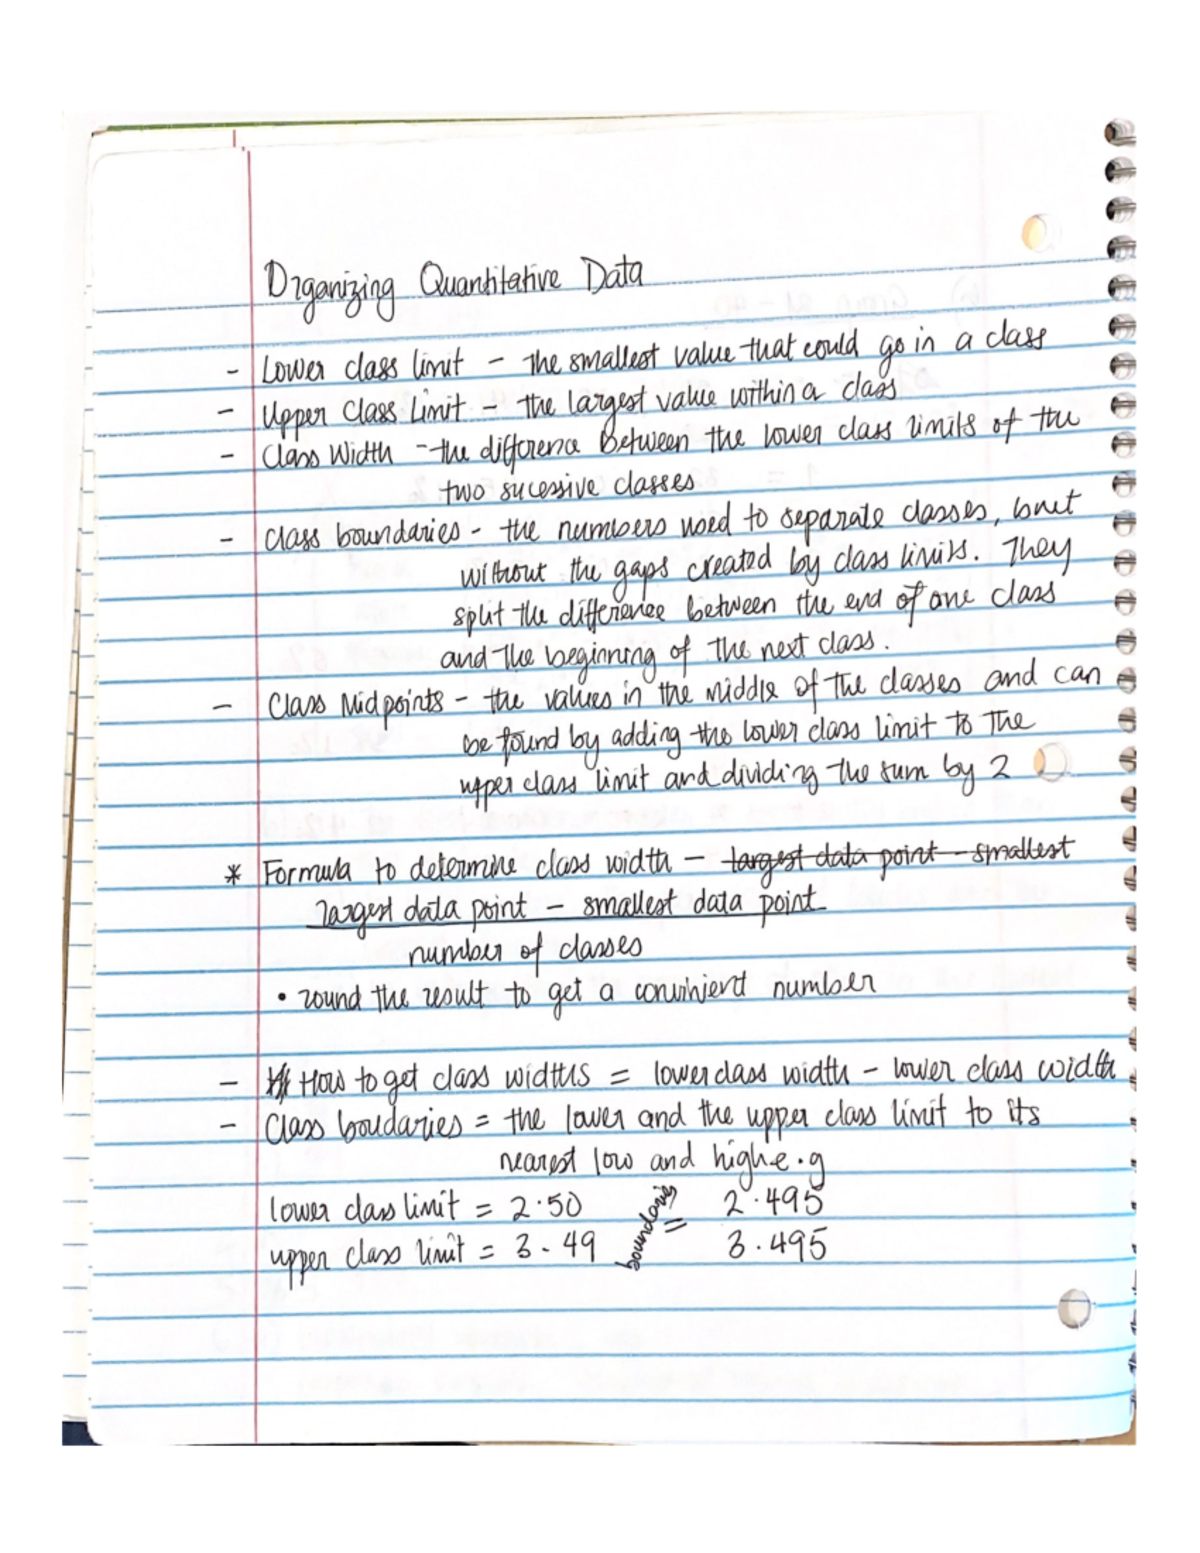 Organizing Quantitative Data
- Lower class limit - the smallest value that could go in a class
- Upper Class Limit - the largest value within a class
- Class Width - the difference between the lower class limits of the
two sucessive classes
- Class boundaries - the numbers used to separate classes, but
without the gaps created by class limits. They
split the difference between the end of one class
and the beginning of the next class.
- Class Midpoints - the values in the middle of the classes and can
be found by adding the lower class limit to the
upper class limit and dividing the sum by 2
* Formula to determine class width - largest data point - smallest
largest data point - smallest data point
number of classes
• round the result to get a convinient number
- How to get class widths = lower class width - lower class width
- Class boudaries = the lower and the upper class limit to its
nearest low and high e.g
lower class limit = 2.50 boundaries = 2.495
upper class limit = 3.49 3.495